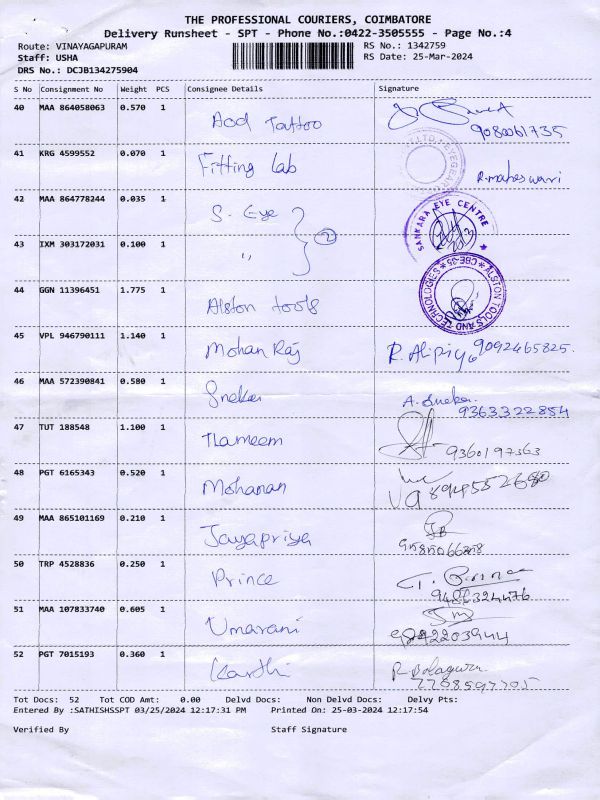 THE PROFESSIONAL COURIERS, COIMBATORE
Delivery Runsheet - SPT - Phone No.:0422-3505555 - Page No.:4
Route: VINAYAGAPURAM RS No.: 1342759
Staff: USHA RS Date: 25-Mar-2024
DRS No.: DCJB134275904
S No Consignment No Weight PCS Consignee Details Signature
40 MAA 864058063 0.570 1 Aod Tattoo
9080061735
41 KRG 4599552 0.070 1 Fitting Lab R.maheswari
42 MAA 864778244 0.035 1 S. Eye SANKARA EYE CENTRE
43 IXM 303172031 0.100 1 ,, 2
44 GGN 11396451 1.775 1 Alston tools ALSTON TOOLS AND TECHNOLOGIES CBE-35
45 VPL 946790111 1.140 1 Mohan Raj 9092465825
46 MAA 572390841 0.580 1 Sneka A. Sneka
9363322854
47 TUT 188548 1.100 1 Tlameem 9360197363
48 PGT 6165343 0.520 1 Mohanan
49 MAA 865101169 0.210 1 Jayapriya
50 TRP 4528836 0.250 1 Prince
9486324476
51 MAA 107833740 0.605 1 Umarani
52 PGT 7015193 0.360 1 Karthi
Tot Docs: 52 Tot COD Amt: 0.00 Delvd Docs: Non Delvd Docs: Delvy Pts:
Entered By :SATHISHSSPT 03/25/2024 12:17:31 PM Printed On: 25-03-2024 12:17:54
Verified By Staff Signature